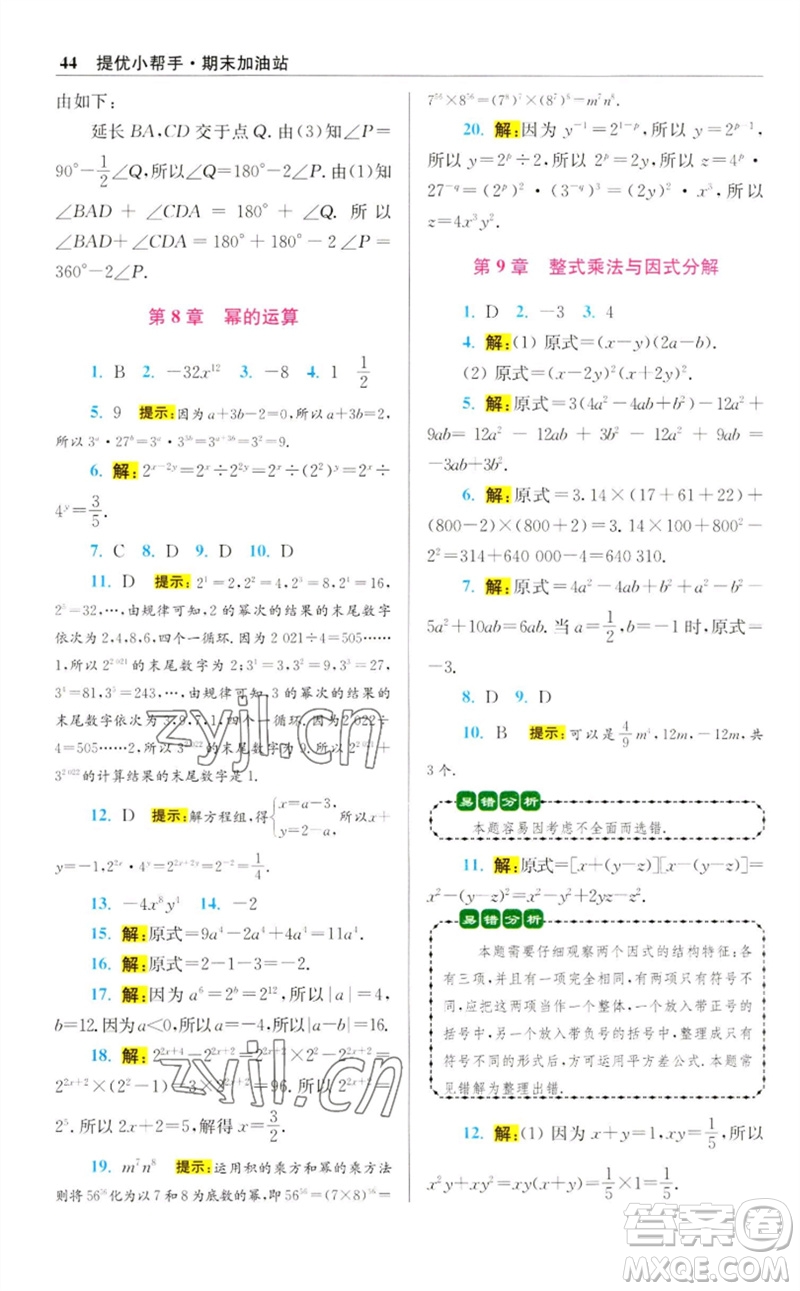 44 提优小帮手·期末加油站
由如下：
延长 BA,CD 交于点 Q. 由(3)知∠P=
90°-1/2∠Q,所以∠Q=180°-2∠P. 由(1)知
∠BAD + ∠CDA = 180° + ∠Q. 所 以
∠BAD+∠CDA=180°+180°-2∠P=
360°-2∠P.
第 8 章 幂的运算
1. B 2. -32x¹² 3. -8 4. 1 1/2
5. 9 提示：因为 a+3b-2=0,所以 a+3b=2,
所以 3ᵃ·27ᵇ=3ᵃ·3³ᵇ=3ᵃ⁺³ᵇ=3²=9.
6. 解：2ˣ⁻²ʸ=2ˣ÷2²ʸ=2ˣ÷(2²)ʸ=2ˣ÷
4ʸ=3/5.
7. C 8. D 9. D 10. D
11. D 提示：2¹=2,2²=4,2³=8,2⁴=16,
2⁵=32,…,由规律可知,2 的幂次的结果的末尾数字
依次为 2,4,8,6,四个一循环. 2 021÷4=505……
1,所以 2²⁰²¹的末尾数字为 2. 3¹=3,3²=9,3³=27,
3⁴=81,3⁵=243,…,由规律可知,3 的幂次的结果的
末尾数字依次为 3,9,7,1,四个一循环. 2 022÷
4=505……2,所以 3²⁰²²的末尾数字为 9. 所以 2²⁰²¹+
3²⁰²²的计算结果的末尾数字是 1.
12. D 提示：解方程组,得{x=a-3, y=2-2a, 所以 2x+
y=-1,2²ˣ·4ʸ
13. -4x⁸y⁴ 14. -2
15. 解：原式=9a⁴-2a⁴+4a⁴=11a⁴.
16. 解：原式=2-1-3=-2.
17. 解：因为 a⁶=2ᵇ=2¹²,所以|a|=4,
b=12. 因为 a<0,所以 a=-4. 所以|a|+b=16.
18. 解：2²ˣ⁺⁴-2²ˣ⁺²=2²ˣ⁺²×2²-2²ˣ⁺²=
2²ˣ⁺²×(2²-1)=2²ˣ⁺²×3=96. 所以 2²ˣ⁺²=
2⁵. 所以 2x+2=5,解得 x=3/2.
19. m⁷n⁸ 提示：运用积的乘方和幂的乘方法
则将 56⁵⁶化为以 7 和 8 为底数的幂,即 56⁵⁶=(7×8)⁵⁶=
7⁵⁶×8⁵⁶=(7⁸)⁷×(8⁷)⁸=m⁷n⁸.
20. 解：因为 y⁻¹=2¹⁻ᵖ,所以 y=2ᵖ⁻¹.
所以 y=2ᵖ÷2,所以 2ᵖ=2y. 所以 z=4ᵖ·
27⁻q=(2ᵖ)²·(3⁻q)³=(2y)²·x³,所以
z=4x³y².
第 9 章 整式乘法与因式分解
1. D 2. -3 3. 4
4. 解：(1) 原式=(x-y)(2a-b).
(2) 原式=(x-2)²(x+2)².
5. 解：原式=3(4a²-4ab+b²)-12a²+
9ab=12a²-12ab+3b²-12a²+9ab=
-3ab+3b².
6. 解：原式=3.14×(17+61+22)+
(800-2)×(800+2)=3.14×100+800²-
2²=314+640 000-4=640 310.
7. 解：原式=4a²-b²+a²-4ab+b²-
5a²+10ab=6ab. 当 a=1/2,b=-1 时,原式=
-3.
8. D 9. D
10. B 提示：可以是4/9m⁴,12m,-12m,共
3 个.
易错分析
本题容易因考虑不全面而选错.
11. 解：原式=[x+(y-z)][x-(y-z)]=
x²-(y-z)²=x²-y²+2yz-z².
易错分析
本题需要仔细观察两个因式的结构特征：各
有三项,并且有一项的符号相同,有两项符号不
同,应把这两项当作一个整体,一个放入带正号的
括号中,另一个放入带负号的括号中,写成只有
符号不同的形式后,方可运用平方差公式. 本题常
见错解为整理出错.
12. 解：(1) 因为 x+y=1,xy=1/5,所以
x²y+xy²=xy(x+y)=1/5×1=1/5.
zyjl.cn
zyjl.cn
答案卷
MXQE.COM